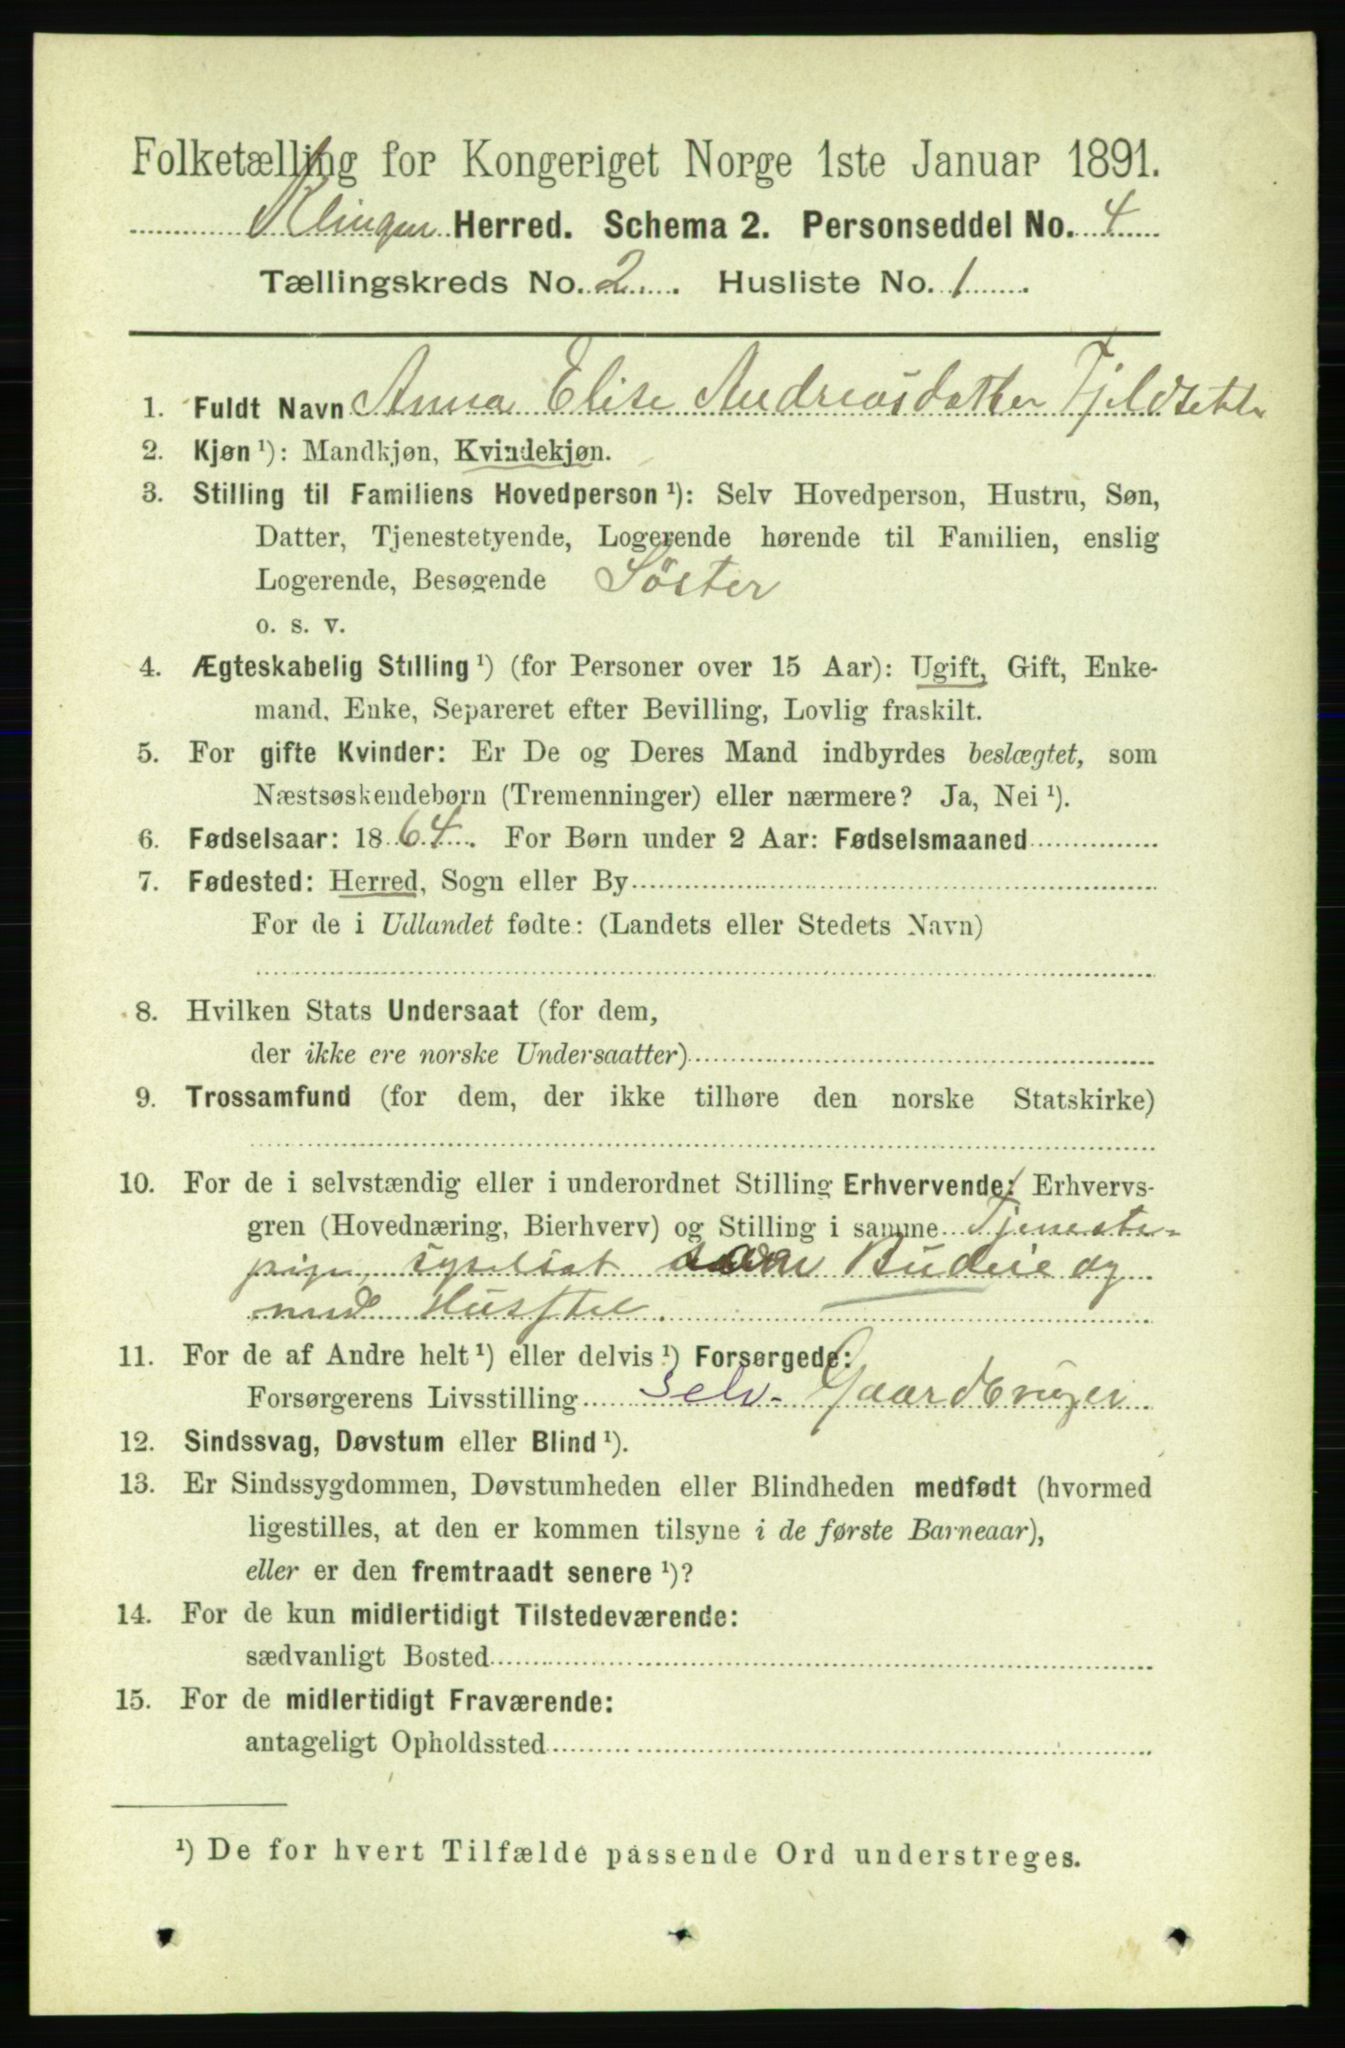 Folketælling for Kongeriget Norge 1ste Januar 1891.
Klingen Herred. Schema 2. Personseddel No. 4
Tællingskreds No. 2. Husliste No. 1.
1. Fuldt Navn Anna Elise Andreasdatter
2. Kjøn ¹): Mandkjøn, Kvindekjøn.
3. Stilling til Familiens Hovedperson ¹): Selv Hovedperson, Hustru, Søn,
Datter, Tjenestetyende, Logerende hørende til Familien, enslig
Logerende, Besøgende Söster
o. s. v.
4. Ægteskabelig Stilling ¹) (for Personer over 15 Aar): Ugift, Gift, Enke-
mand, Enke, Separeret efter Bevilling, Lovlig fraskilt.
5. For gifte Kvinder: Er De og Deres Mand indbyrdes beslægtet, som
Næstsøskendebørn (Tremenninger) eller nærmere? Ja, Nei ¹).
6. Fødselsaar: 1864. For Børn under 2 Aar: Fødselsmaaned
7. Fødested: Herred, Sogn eller By
For de i Udlandet fødte: (Landets eller Stedets Navn)
8. Hvilken Stats Undersaat (for dem,
der ikke ere norske Undersaatter)
9. Trossamfund (for dem, der ikke tilhøre den norske Statskirke)
10. For de i selvstændig eller i underordnet Stilling Erhvervende: Erhvervs-
gren (Hovednæring, Bierhverv) og Stilling i samme Tjeneste-
pige, syselsat som Budeie og
med Husstel.
11. For de af Andre helt ¹) eller delvis ¹) Forsørgede:
Forsørgerens Livsstilling Selv- Gaardbruger
12. Sindssvag, Døvstum eller Blind ¹).
13. Er Sindssygdommen, Døvstumheden eller Blindheden medfødt (hvormed
ligestilles, at den er kommen tilsyne i de første Barneaar),
eller er den fremtraadt senere ¹)?
14. For de kun midlertidigt Tilstedeværende:
sædvanligt Bosted
15. For de midlertidigt Fraværende:
antageligt Opholdssted
¹) De for hvert Tilfælde passende Ord understreges.